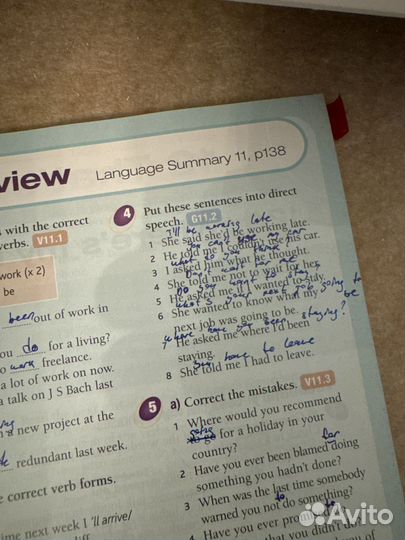 view
Language Summary 11, p138
s with the correct
verbs. V11.1
work (x 2)
be
been out of work in
ou do for a living?
o work freelance.
a lot of work on now.
a talk on J S Bach last
new project at the
redundant last week.
e correct verb forms.
ime next week I 'll arrive/
4 Put these sentences into direct
speech. G11.2
I'll be working late
1 She said she'd be working late.
You can't use my car
2 He told me I couldn't use his car.
what do you think
3 I asked him what he thought.
Don't wait for me
4 She told me not to wait for her.
Do you want to stay
5 He asked me if I wanted to stay.
what's your next job going to be
6 She wanted to know what my
next job was going to be.
where have you been staying?
7 He asked me where I'd been
staying.
You have to leave
8 She told me I had to leave.
5 a) Correct the mistakes. V11.3
1 Where would you recommend
going
to go for a holiday in your
country?
for
2 Have you ever been blamed doing
something you hadn't done?
3 When was the last time somebody
to
warned you not do something?
4 Have you ever
that you didn't
Avito